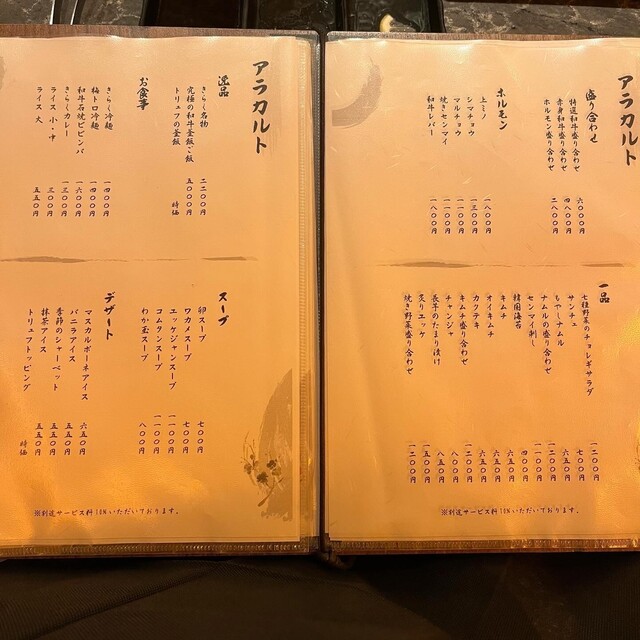 アラカルト
盛り合わせ
特選和牛盛り合わせ 六〇〇〇円
赤身和牛盛り合わせ 四八〇〇円
ホルモン盛り合わせ 二八〇〇円
ホルモン
上ミノ 一八〇〇円
シマチョウ 一三〇〇円
マルチョウ 一一〇〇円
焼きセンマイ 一一〇〇円
和牛レバー 一八〇〇円
一品
七種野菜のチョレギサラダ 一二〇〇円
サンチュ 七〇〇円
もやしナムル 六五〇円
ナムルの盛り合わせ 一二〇〇円
センマイ刺し 一一〇〇円
韓国海苔 四〇〇円
キムチ 六五〇円
オイキムチ 六五〇円
カクテキ 六五〇円
キムチ盛り合わせ 一二〇〇円
チャンジャ 八〇〇円
長芋のたまり漬け 八五〇円
炙りユッケ 一五〇〇円
焼き野菜盛り合わせ 一二〇〇円
※別途サービス料10%いただいております。
アラカルト
逸品
きらく名物 二二〇〇円
究極の和牛釜飯ご飯 五〇〇〇円
トリュフの釜飯 時価
お食事
きらく冷麺 一四〇〇円
梅トロ冷麺 一四〇〇円
和牛石焼ビビンバ 一六〇〇円
きらくカレー 一三〇〇円
ライス 小・中 三〇〇円
ライス 大 五五〇円
スープ
卵スープ 七〇〇円
ワカメスープ 七〇〇円
ユッケジャンスープ 一一〇〇円
コムタンスープ 一一〇〇円
わか玉スープ 八〇〇円
デザート
マスカルポーネアイス 六五〇円
バニラアイス 五五〇円
季節のシャーベット 五五〇円
抹茶アイス 五五〇円
トリュフトッピング 時価
※別途サービス料10%いただいております。